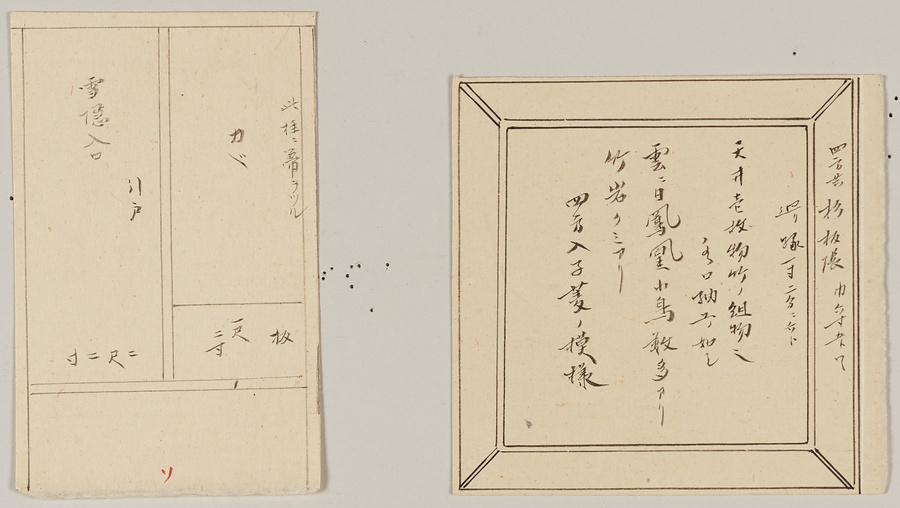 此柱ニ
カベ
雪隠入口
引戸
板
一尺
二寸
二尺二寸
ソ
四方共杉板張
廻リ縁一寸二分ニ
天井壱枚物竹ノ組物之
如し
雲ニ日鳳凰小鳥数多アリ
竹岩クミアリ
四方入子菱ノ模様